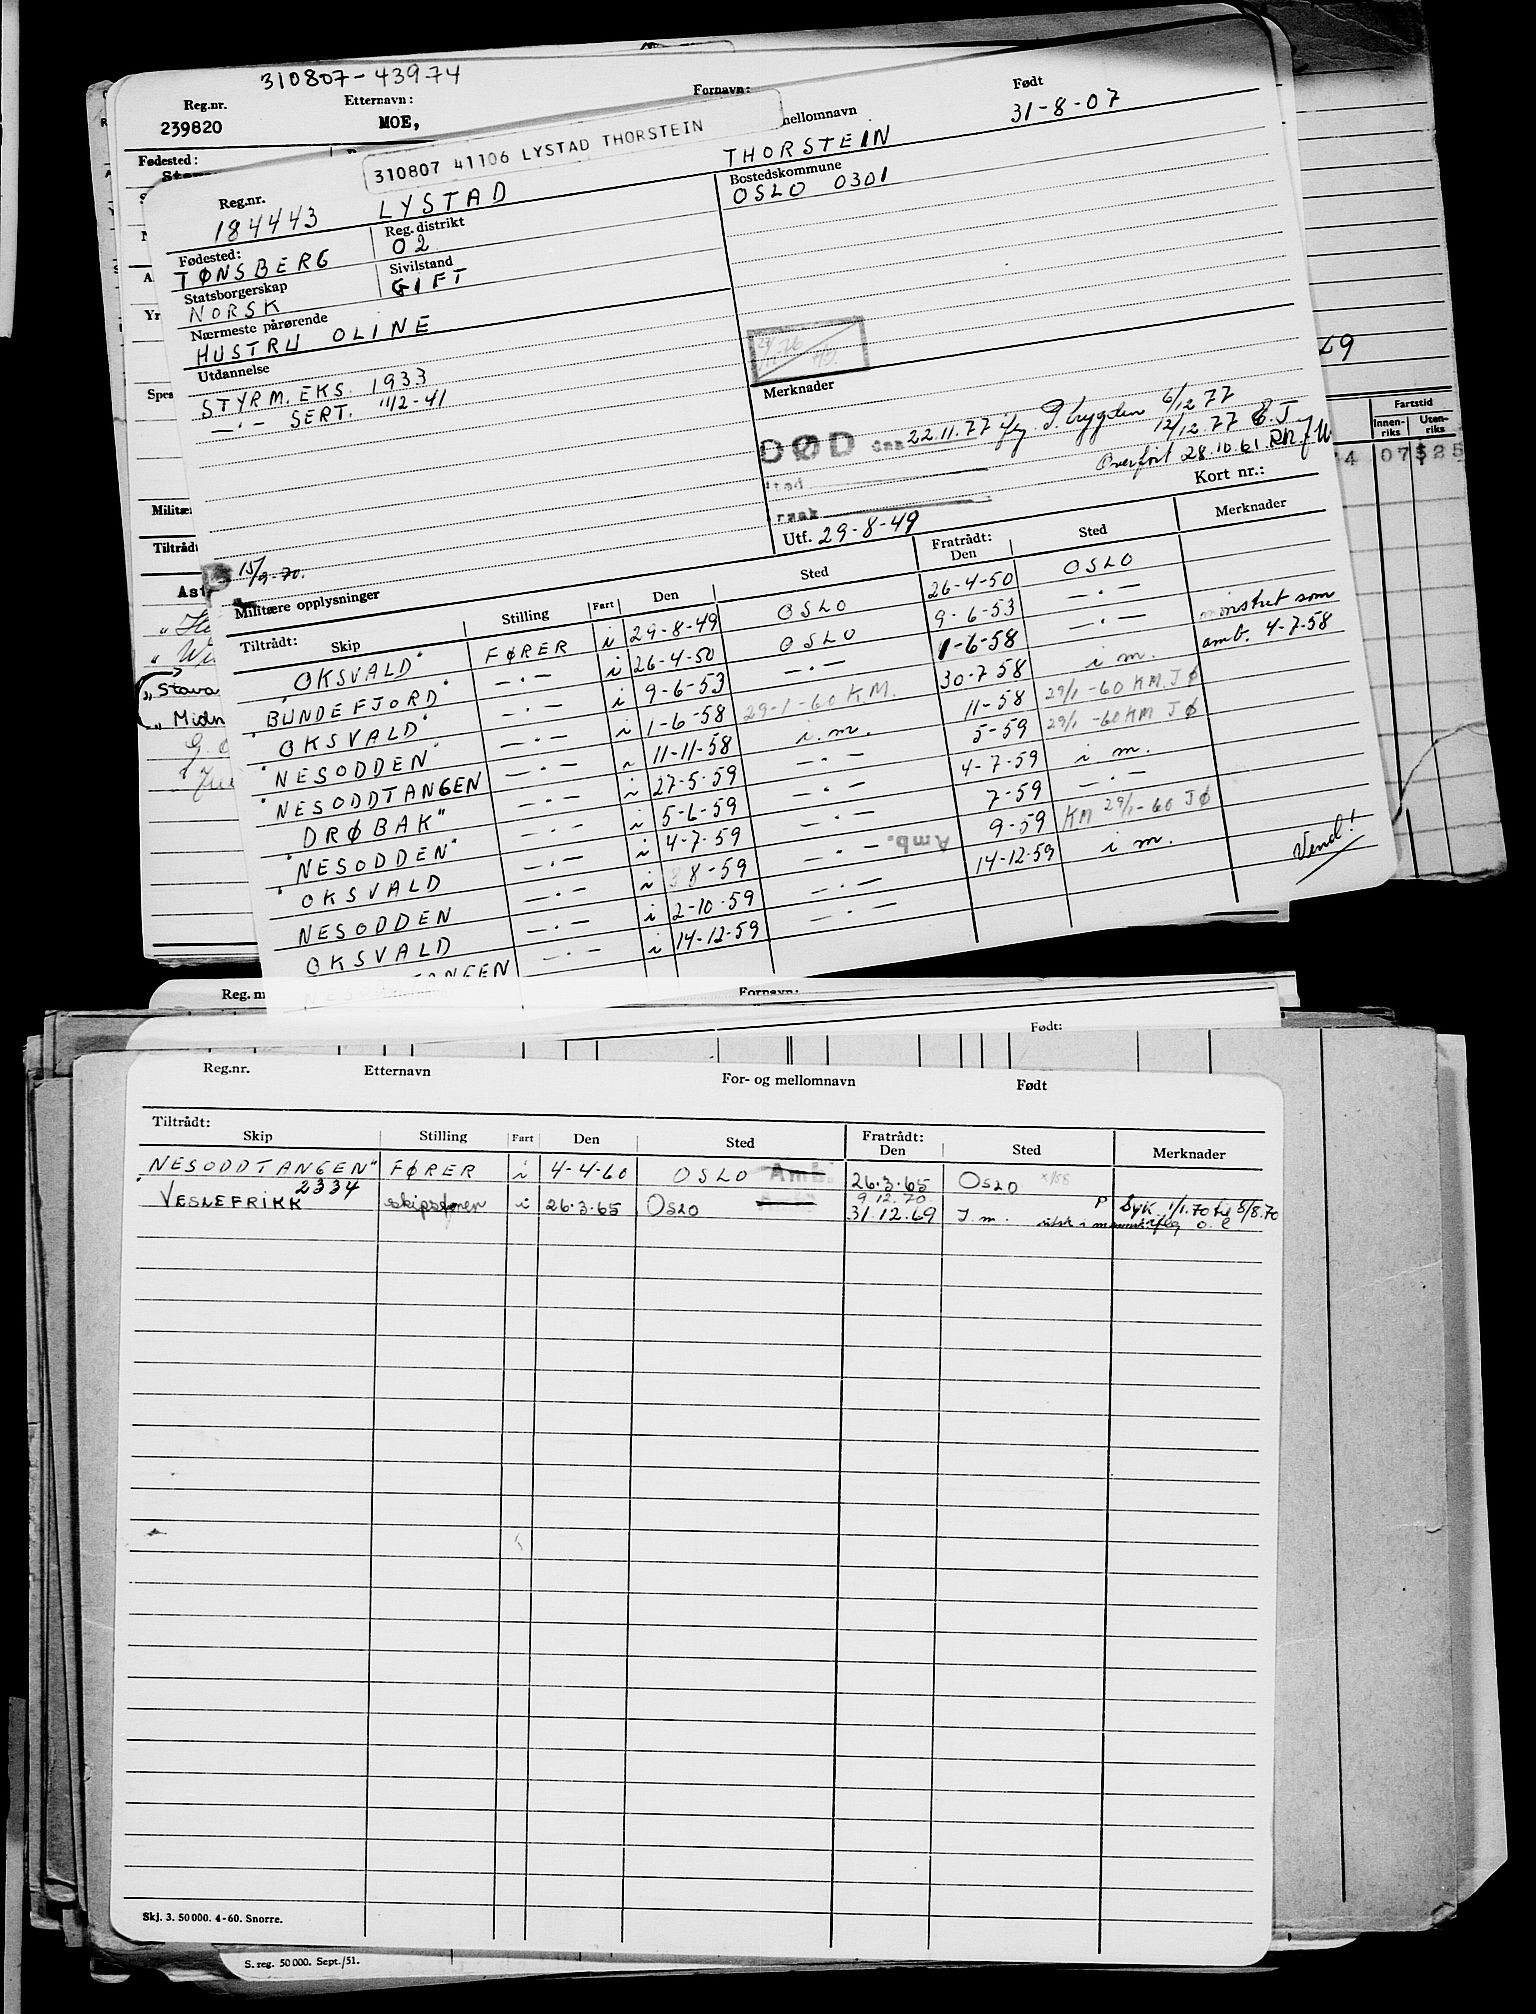 310807-43974
Reg.nr. Etternavn: Fornavn: Født
239820 MOE,
310807 41106 LYSTAD THORSTEIN
mellomnavn 31-8-07
Fødested:
Reg.nr.
184443 LYSTAD THORSTEIN
Fødested: Reg. distrikt Bostedskommune
TØNSBERG 02 OSLO 0301
Statsborgerskap Sivilstand
NORSK GIFT
Nærmeste pårørende
HUSTRU OLINE
Utdannelse
STYRM. EKS. 1933
—·— SERT. 11/2-41
Merknader
DØD den 22.11.77 flg. P.trygden 6/12 77
12/12 77 E.J
Sted
Årsak
Overført 28.10.61
Utf. 29-8-49 Kort nr.:
15/9-70.
Militære opplysninger
Fartstid
Innen-riks Uten-riks
07 $25
Tiltrådt: Skip Stilling Fart Den Sted Fratrådt: Den Sted Merknader
"OKSVALD" FØRER i 29-8-49 OSLO 26-4-50 OSLO
"BUNDEFJORD" —·— i 26-4-50 OSLO 9-6-53 —·—
"OKSVALD" —·— i 9-6-53 —·— 1-6-58 —·— mønstret som
"NESODDEN" —·— i 1-6-58 29-1-60 K.M. 30-7-58 i m. amb. 4-7-58
"NESODDTANGEN —·— i 11-11-58 i.m. 11-58 29/1-60 KM. JØ
DRØBAK" —·— i 27-5-59 —·— 5-59 29/1-60 KM JØ
"NESODDEN" —·— i 5-6-59 —·— 4-7-59 i m.
"OKSVALD —·— i 4-7-59 —·— 7-59 —·—
NESODDEN —·— i 8-59 —·— Amb. 9-59 KM 29/1-60 JØ
OKSVALD —·— i 2-10-59 —·— 14-12-59 i m.
—·— i 14-12-59 —·— Vend!
Reg. nr Fornavn:
Født:
Reg.nr. Etternavn For- og mellomnavn Født
Tiltrådt: Skip Stilling Fart Den Sted Fratrådt: Den Sted Merknader
NESODDTANGEN" FØRER i 4-4-60 OSLO Amb. 26.3.65 OSLO
2334 9.12.70
"VESLEFRIKK skipsfører i 26.3.65 OSLO 31.12.69 I.m. P Syk 1/1.70 til 8/8.70
Skj. 3. 50000. 4-60. Snorre.
S. reg. 50000. Sept./51.